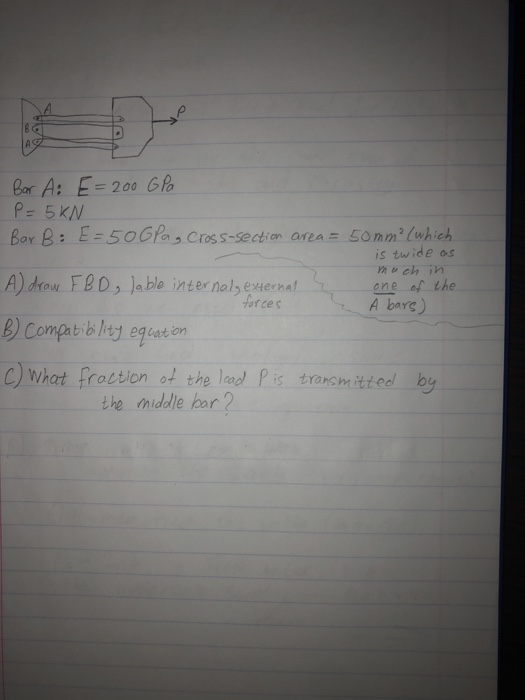 A
P
B
A
Bar A: E = 200 GPa
P = 5KN
Bar B: E = 50GPa, Cross-section area = 50mm² (which
is twide as
much in
one of the
A bars)
A) draw FBD, lable internal, external
forces
B) Compatibility equation
C) What fraction of the load P is transmitted by
the middle bar?